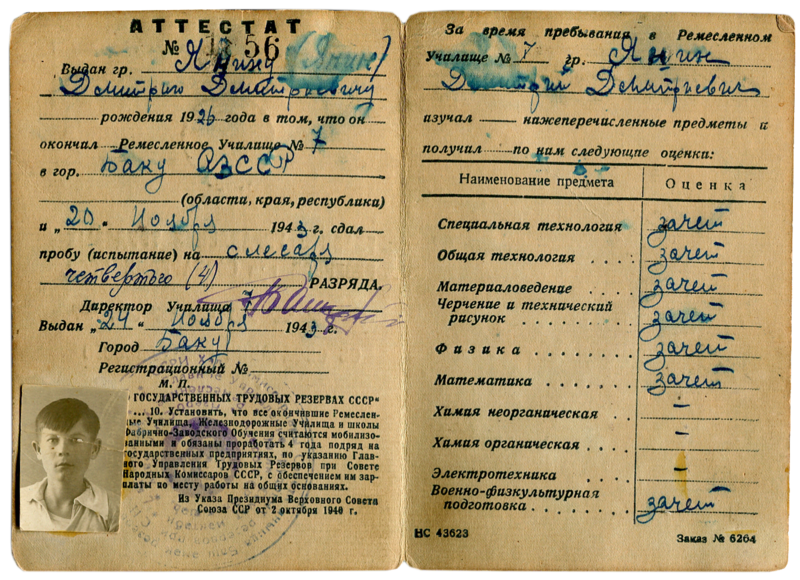 АТТЕСТАТ
№ 1356
Выдан гр. Янину (Янин)
Дмитрию Дмитриевичу
рождения 1926 года в том, что он
окончил Ремесленное Училище № 7
в гор. Баку АзССР
(области, края, республики)
и „20“ Ноября 1943 г. сдал
пробу (испытание) на слесаря
четвертого (4) РАЗРЯДА.
Директор Училища
Выдан „24“ Ноября 1943 г.
Город Баку
Регистрационный №
М. П.
ГОСУДАРСТВЕННЫХ ТРУДОВЫХ РЕЗЕРВАХ СССР“
... 10. Установить, что все окончившие Ремеслен-
ные Училища, Железнодорожные Училища и школы
Фабрично-Заводского Обучения считаются мобилизо-
ванными и обязаны проработать 4 года подряд на
государственных предприятиях, по указанию Глав-
ного Управления Трудовых Резервов при Совете
Народных Комиссаров СССР, с обеспечением им зар-
платы по месту работы на общих основаниях.
Из Указа Президиума Верховного Совета
Союза ССР от 2 октября 1940 г.
За время пребывания в Ремесленном
Училище № 7 гр. Янин
Дмитрий Дмитриевич
изучал нижеперечисленные предметы и
получил по ним следующие оценки:
Наименование предмета Оценка
Специальная технология зачет
Общая технология зачет
Материаловедение зачет
Черчение и технический
рисунок зачет
Физика зачет
Математика зачет
Химия неорганическая –
Химия органическая –
Электротехника –
Военно-физкультурная
подготовка зачет
НС 43623 Заказ № 6264